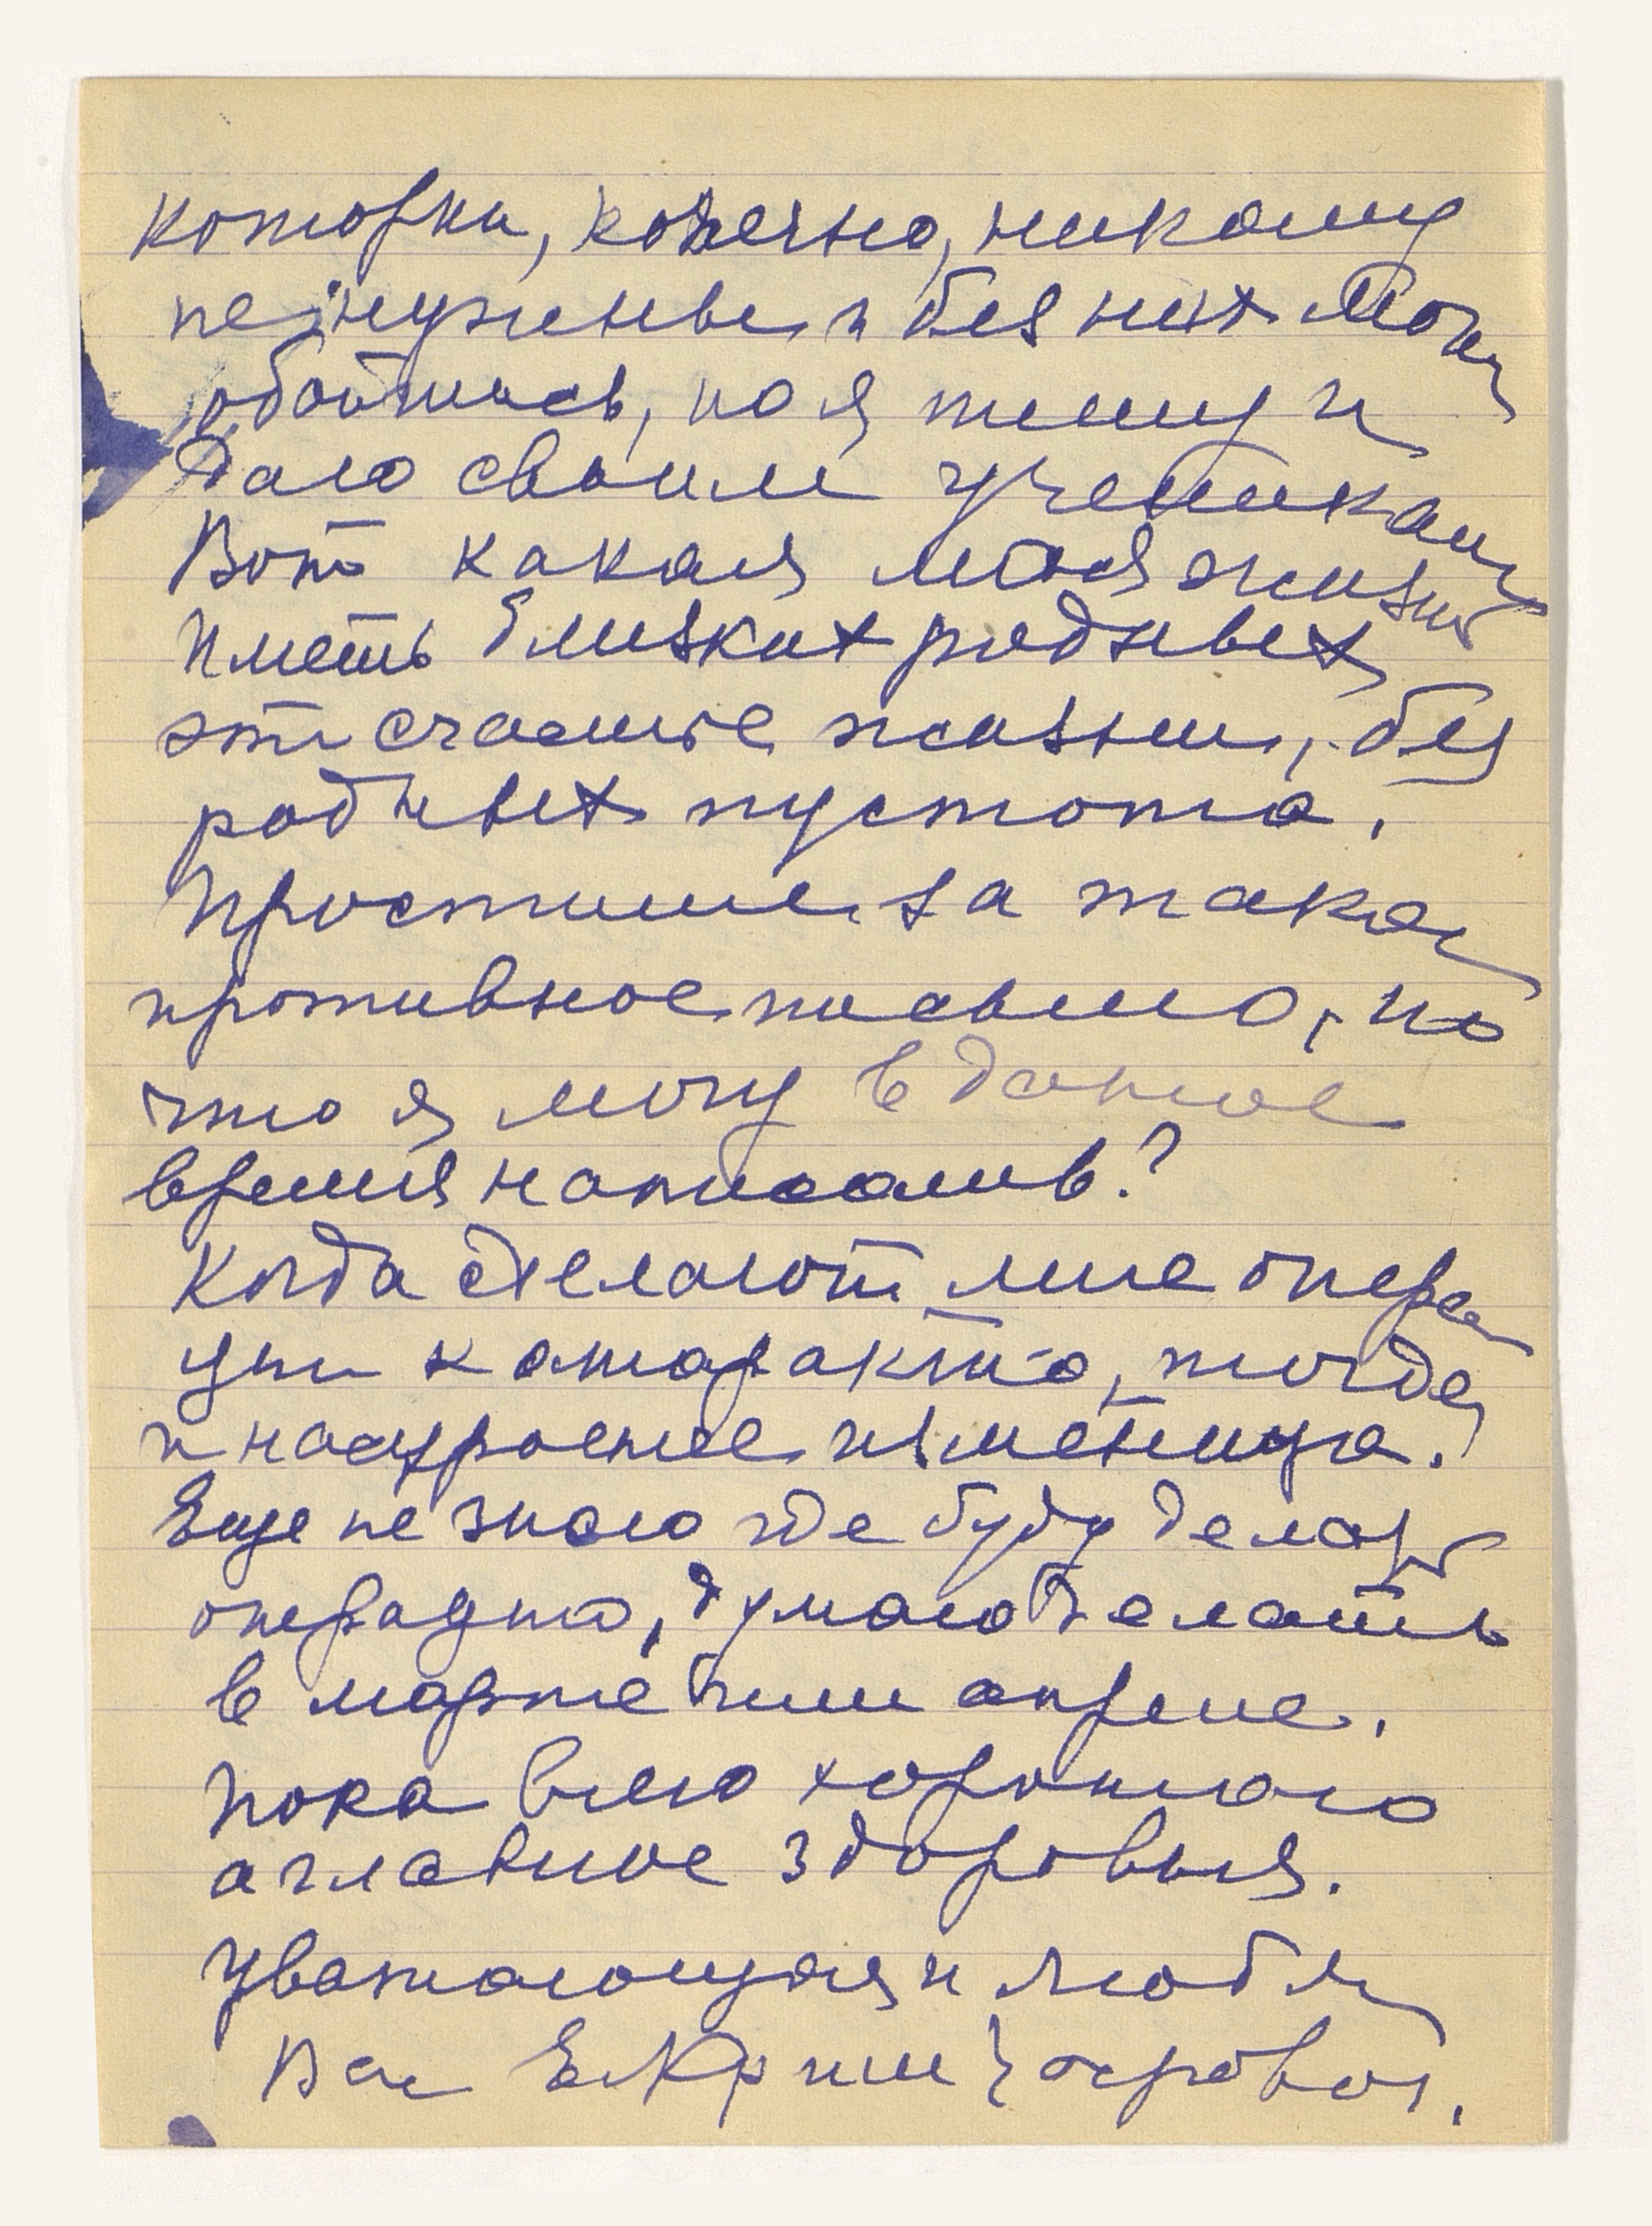 которые, конечно, никому
не нужны и без них можн
обойтись, но я пишу и
даю своим ученикам
Вот какая моя жизнь
Иметь близких родных
это счастье жизни, без
родных пустота.
Простите за такое
противное письмо, но
что я могу в даное
время написать?
Когда сделают мне опера
ции катаракто, тогда
и настроение изменица.
Еще не знаю где буду делат
операцию, думаю делать
в марте или апреле.
Пока всего хорошого
а главное здоровья.
Уважающая и любя
Вас Е.